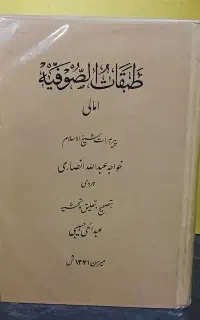 طبقات الصوفیه
امالی
پیر هرات شیخ الاسلام
خواجه عبدالله انصاری
هروی
تصحیح و تعلیق و تحشیه
عبدالحی حبیبی
میزان ۱۳۴۱ ش